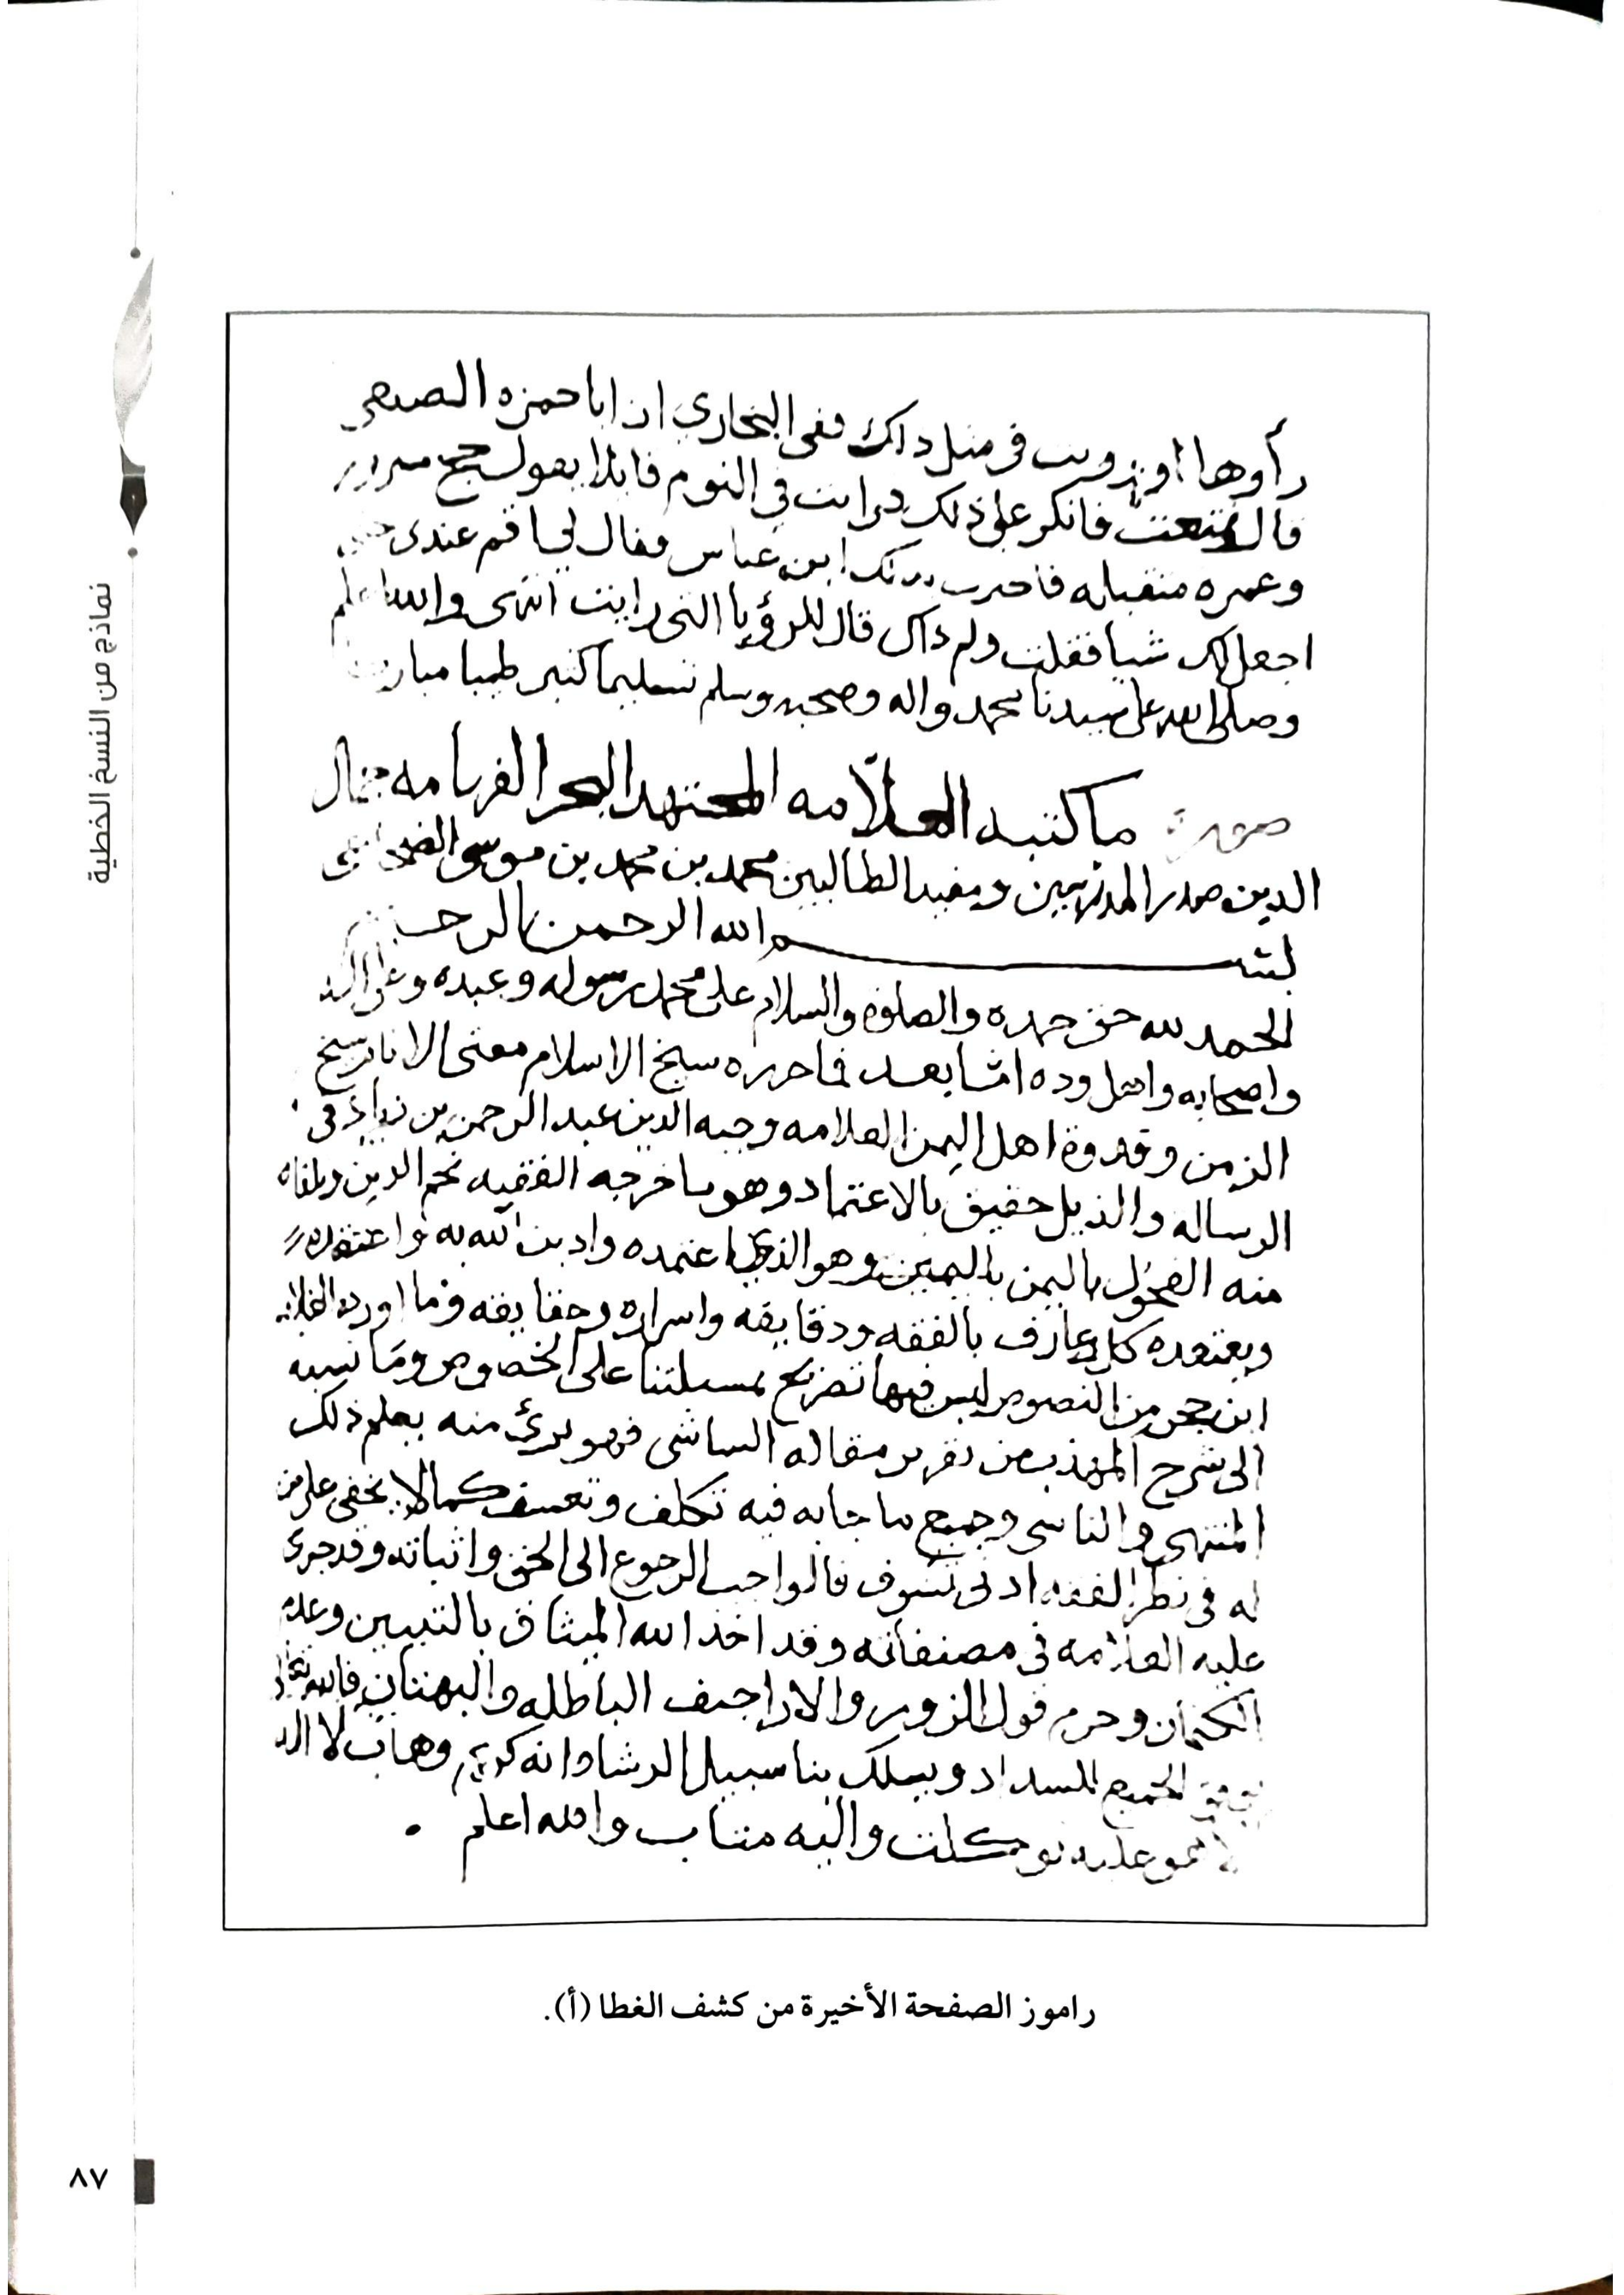 نماذج من النسخ الخطية
رأوها او رويت في مثل ذاك ففي البخاري ان ابا حمزه الضبعي
قال تمتعت فانكر علي ذلك فرايت في النوم قايلا يقول حج مبرور
وعمره متقبله فاخبرت بذلك ابن عباس فقال لي اقم عندي
اجعل لك شيا فقلت ولم ذاك قال للرؤيا التي رايت انتهى والله اعلم
وصلى الله على سيدنا محمد واله وصحبه وسلم تسليما كثير طيبا مباركا
صورة ما كتبه العلّامه المجتهد البحر الفهامه جمال
الدين صدر المدرسين ومفيد الطالبين محمد بن محمد بن موسى الضجاعي
بسم الله الرحمن الرحيم
الحمد لله حق حمده والصلوة والسلام على محمد رسوله وعبده وعلى اله
واصحابه واهل وده امّا بعد فما حرره شيخ الاسلام مفتى الانام شيخ
الزمن وقدوة اهل اليمن العلامه وجيه الدين عبد الرحمن بن زياد في
الرساله والذيل حقيق بالاعتماد وهو ما خرجه الفقيه نجم الدين وتلقاه
منه الفحول باليمن باليمين وهو الذي اعتمده وادين الله به واعتقده
ويعتمده كل عارف بالفقه ودقايقه واسراره وحقايقه وما اورده العلامه
ابن حجر من النصوص ليس فيها تصريح بمسيلتنا على الخصوص وما نسبه
الى شرح المهذب من تقرير مقاله الشاشي فهو برئ منه يعلم ذلك
المنتهي والناشي وجميع ما جا به فيه تكلف وتعسف كما لا يخفى على من
له في نظر الفقه ادنى تشوف فالواجب الرجوع الى الحق واثباته وقد جرى
عليه العلامه في مصنفاته وقد اخذ الله الميثاق بالتبيين وعدم
الكتمان وحرم قول الزور والاراجيف الباطله والبهتان فالله تعالى
يوفق الجميع للسداد ويسلك بنا سبيل الرشاد انه كريم وهاب لا اله
الا هو عليه توكلت واليه متاب والله اعلم
راموز الصفحة الأخيرة من كشف الغطا (أ).
٨٧